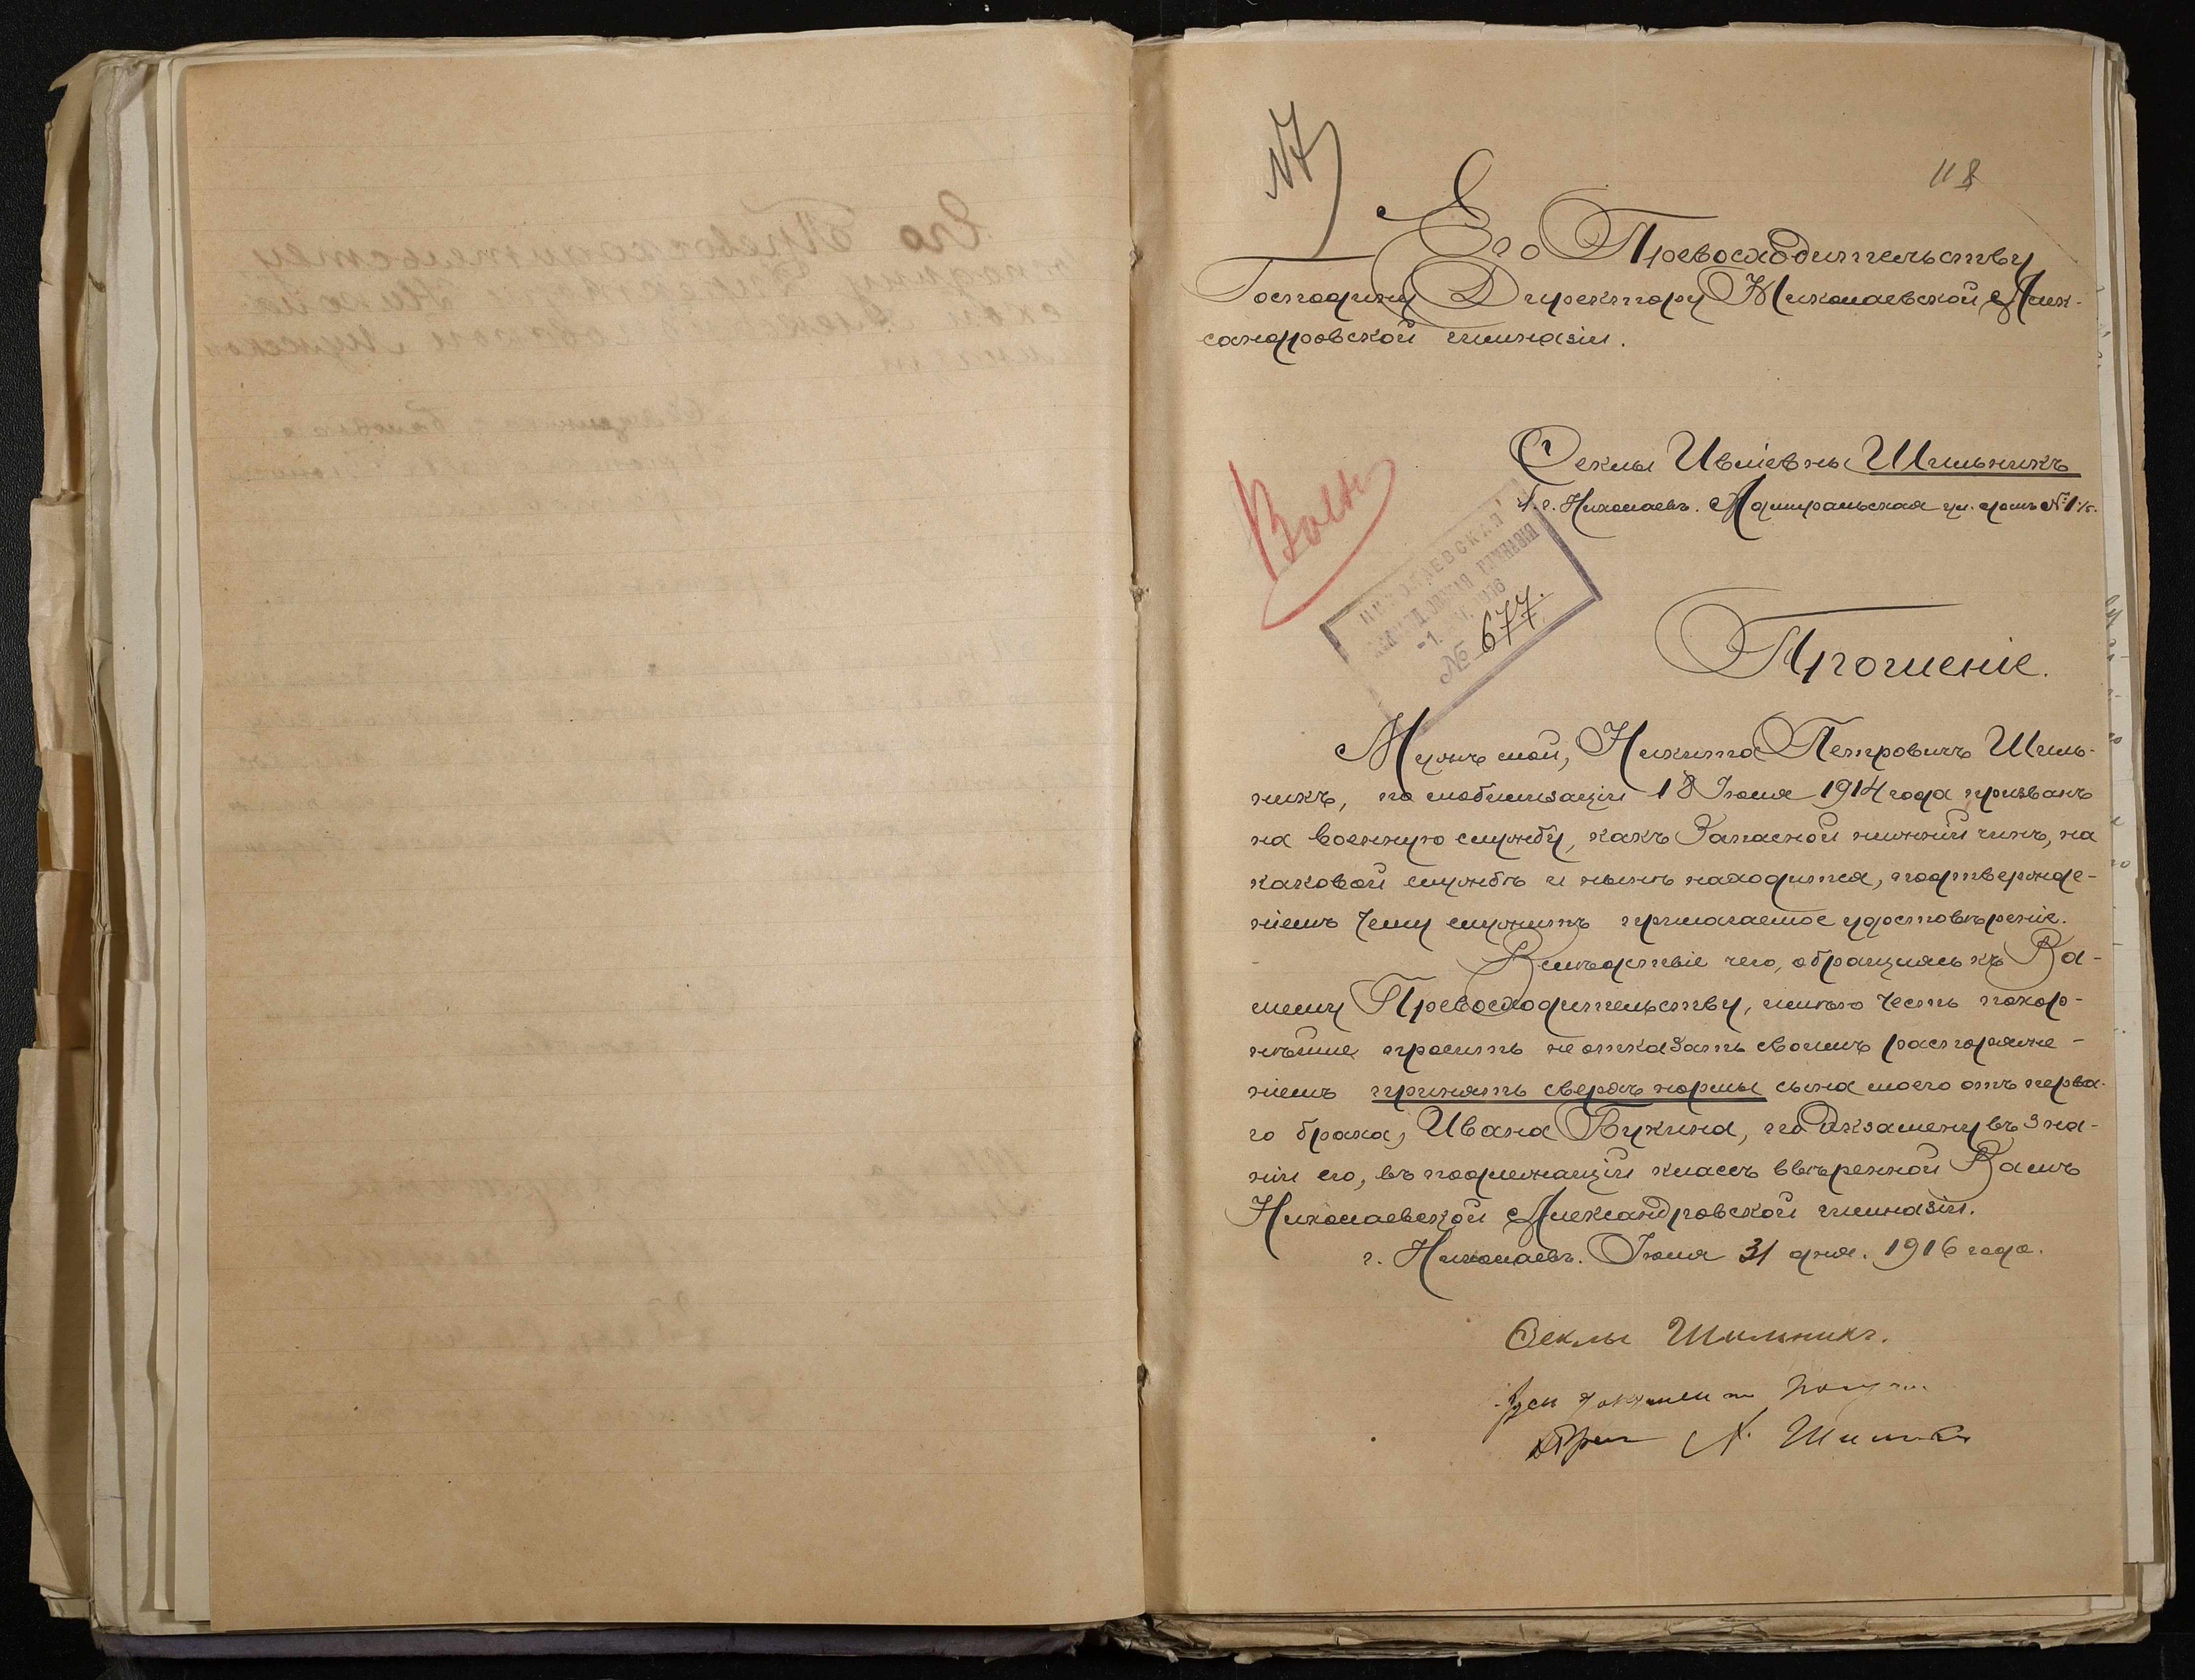 №7
118
Его Превосходительству
Господину Директору Николаевской Алек-
сандровской гимназіи.
Ѳеклы Ивліевны Шильникъ
г. Николаевъ. Адмиральская ул. домъ №
Воен
НИКОЛАЕВСКАЯ
АЛЕКСАНДРОВСКАЯ ГИМНАЗІЯ
1916
№ 677.
Прошеніе.
Мужъ мой, Никита Петровичъ Шиль-
никъ, по мобилизаціи 18 Іюля 1914 года призванъ
на военную службу, какъ Запасной нижній чинъ, на
каковой службѣ и нынѣ находится, подтвержде-
ніемъ чему служитъ прилагаемое удостовѣреніе.
Вслѣдствіе чего, обращаясь къ Ва-
шему Превосходительству, имѣю честь покор-
нѣйше просить не отказать своимъ распоряже-
ніемъ принять сверхъ нормы сына моего отъ перва-
го брака, Ивана Букина, по экзамену въ зна-
ніи его, въ подлежащій классъ ввѣренной Вамъ
Николаевской Александровской гимназіи.
г. Николаевъ. Іюля 31 дня. 1916 года.
Ѳеклы Шильникъ.